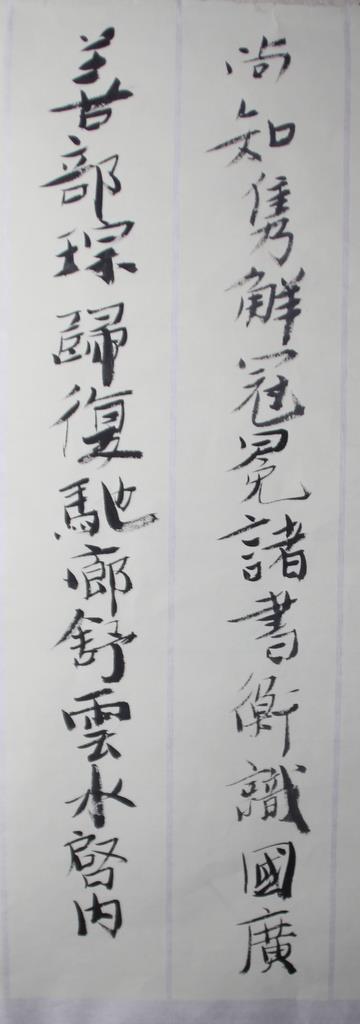 尚知隽解冠冕諸書衡識國廣
善部琮歸復馳廊舒雲水啓内